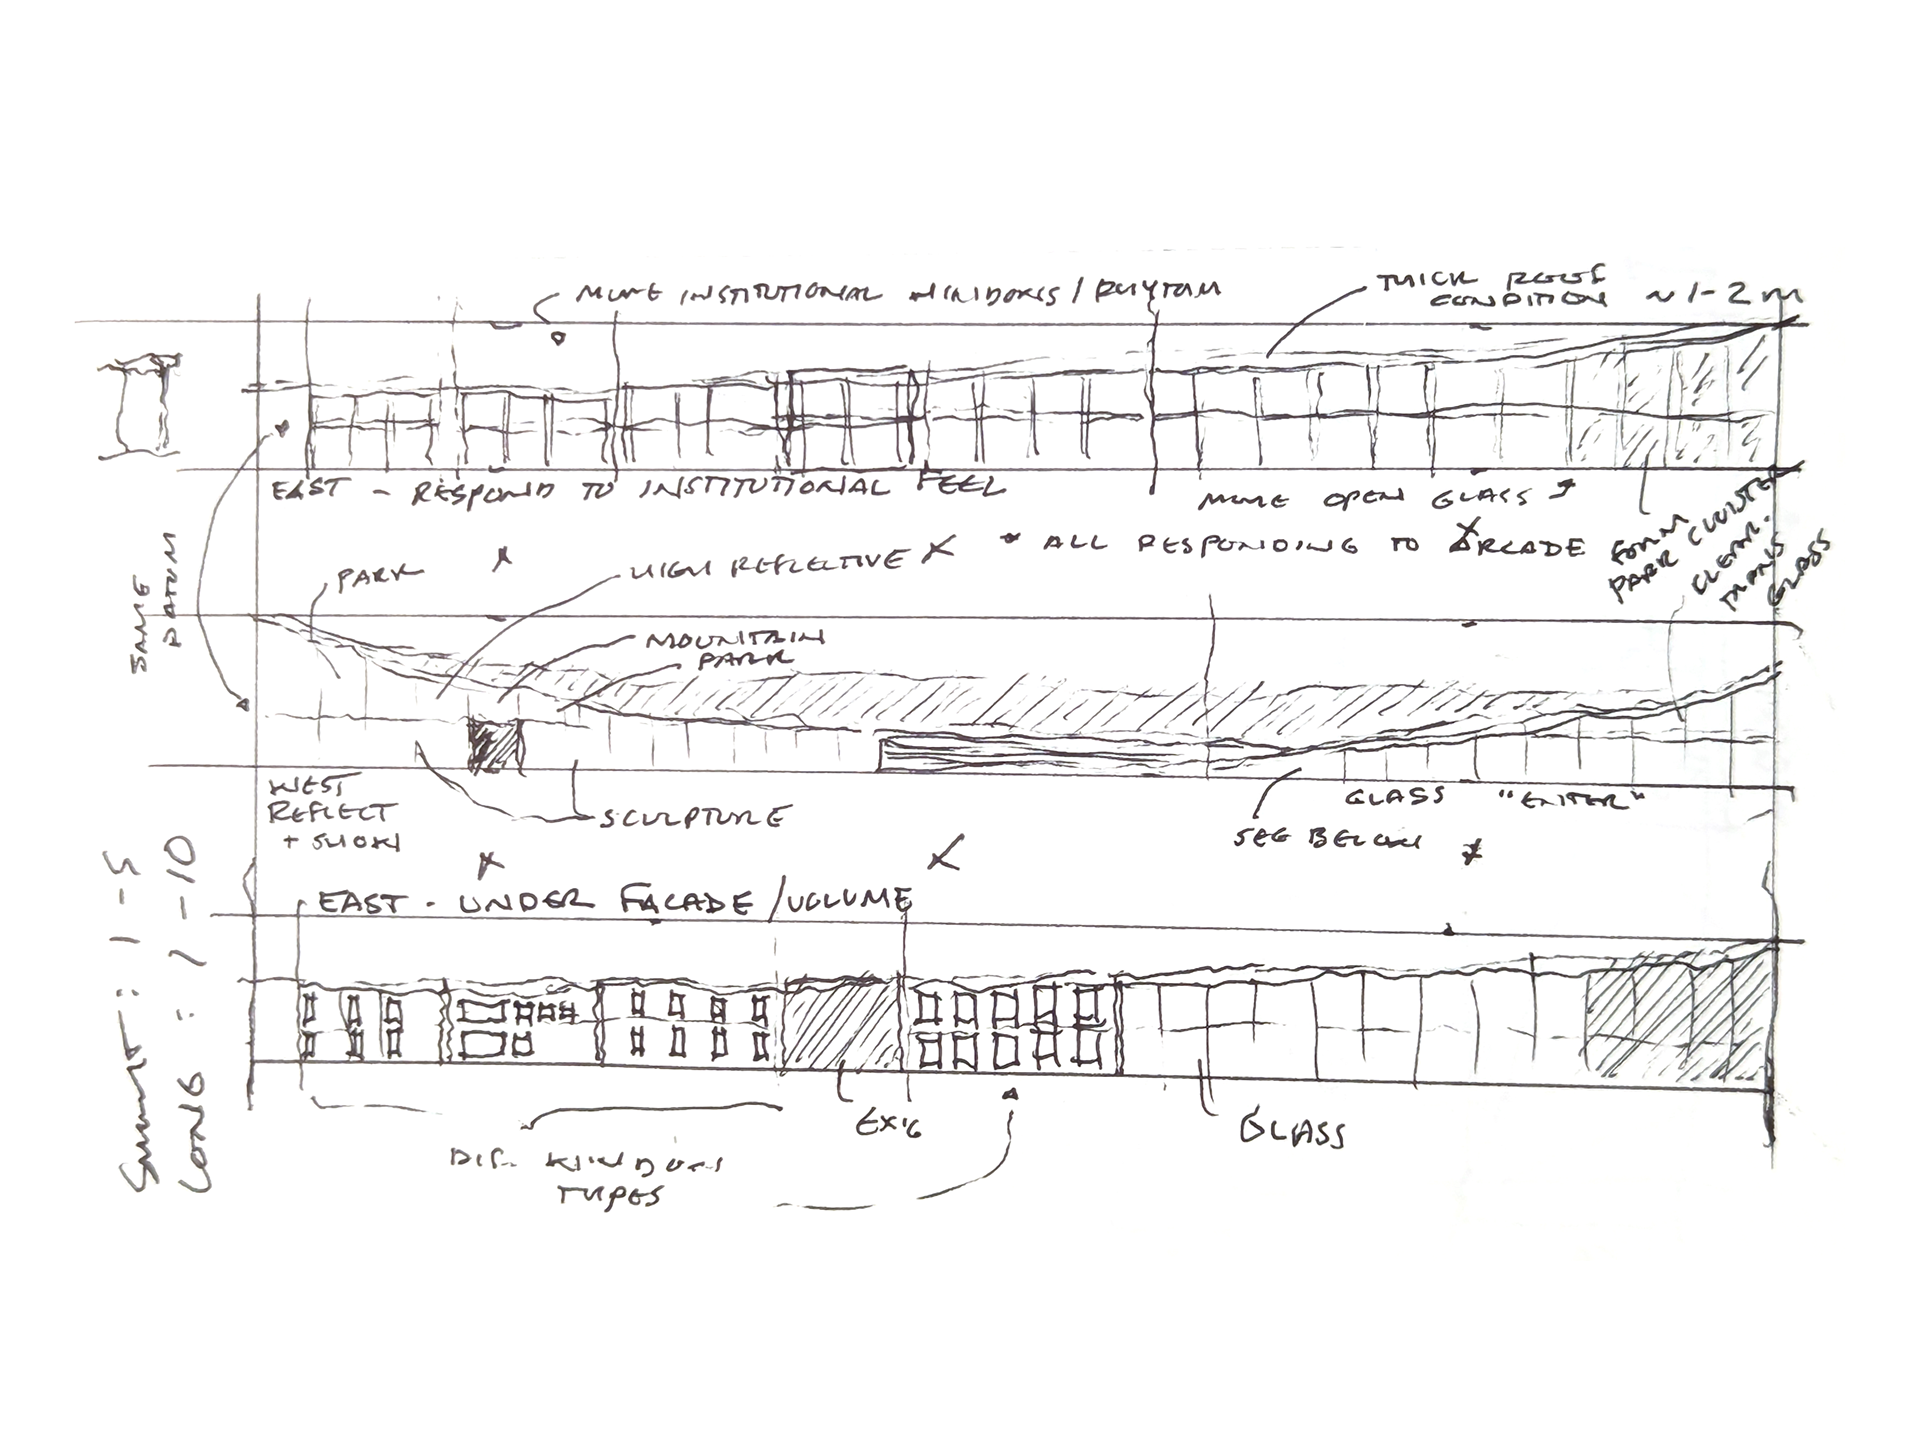 MORE INSTITUTIONAL WINDOWS / RHYTHM
THICK ROOF
CONDITION ~1-2m
EAST - RESPOND TO INSTITUTIONAL FEEL
MORE OPEN GLASS
* ALL RESPONDING TO ARCADE
FORM
PARK CLUSTER
CLEAR.
TRANS
GLASS
SAME
DATUM
PARK
HIGH REFLECTIVE
MOUNTAIN
PARK
WEST
REFLECT
+ SHOW
SCULPTURE
GLASS "ENTER"
SEE BELOW
EAST - UNDER FACADE / VOLUME
SHORT : 1-5
LONG : 1-10
DIF. WINDOW
TYPES
GLASS